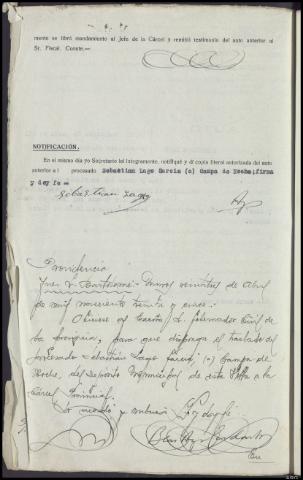 mente se libró mandamiento al Jefe de la Cárcel y remitió testimonio del auto anterior al
Sr. Fiscal. Conste.—
NOTIFICACIÓN.
En el mismo día yo Secretario leí íntegramente, notifiqué y dí copia literal autorizada del auto
anterior a l procesado Sebastian Lago Garcia (a) Campa de Roche; firma
y doy fe =
Sebastian Lago
Providencia
Juez Sr. Barthomé = de Abril
de mil novecientos treinta y
al Gobernador Civil de
La Coruña, para que disponga el traslado del
procesado Sebastián Lago García, (a) Campa de
Roche, del Depósito Municipal de esta Villa a la
Cárcel Provincial.
Lo acordó y Doy fe